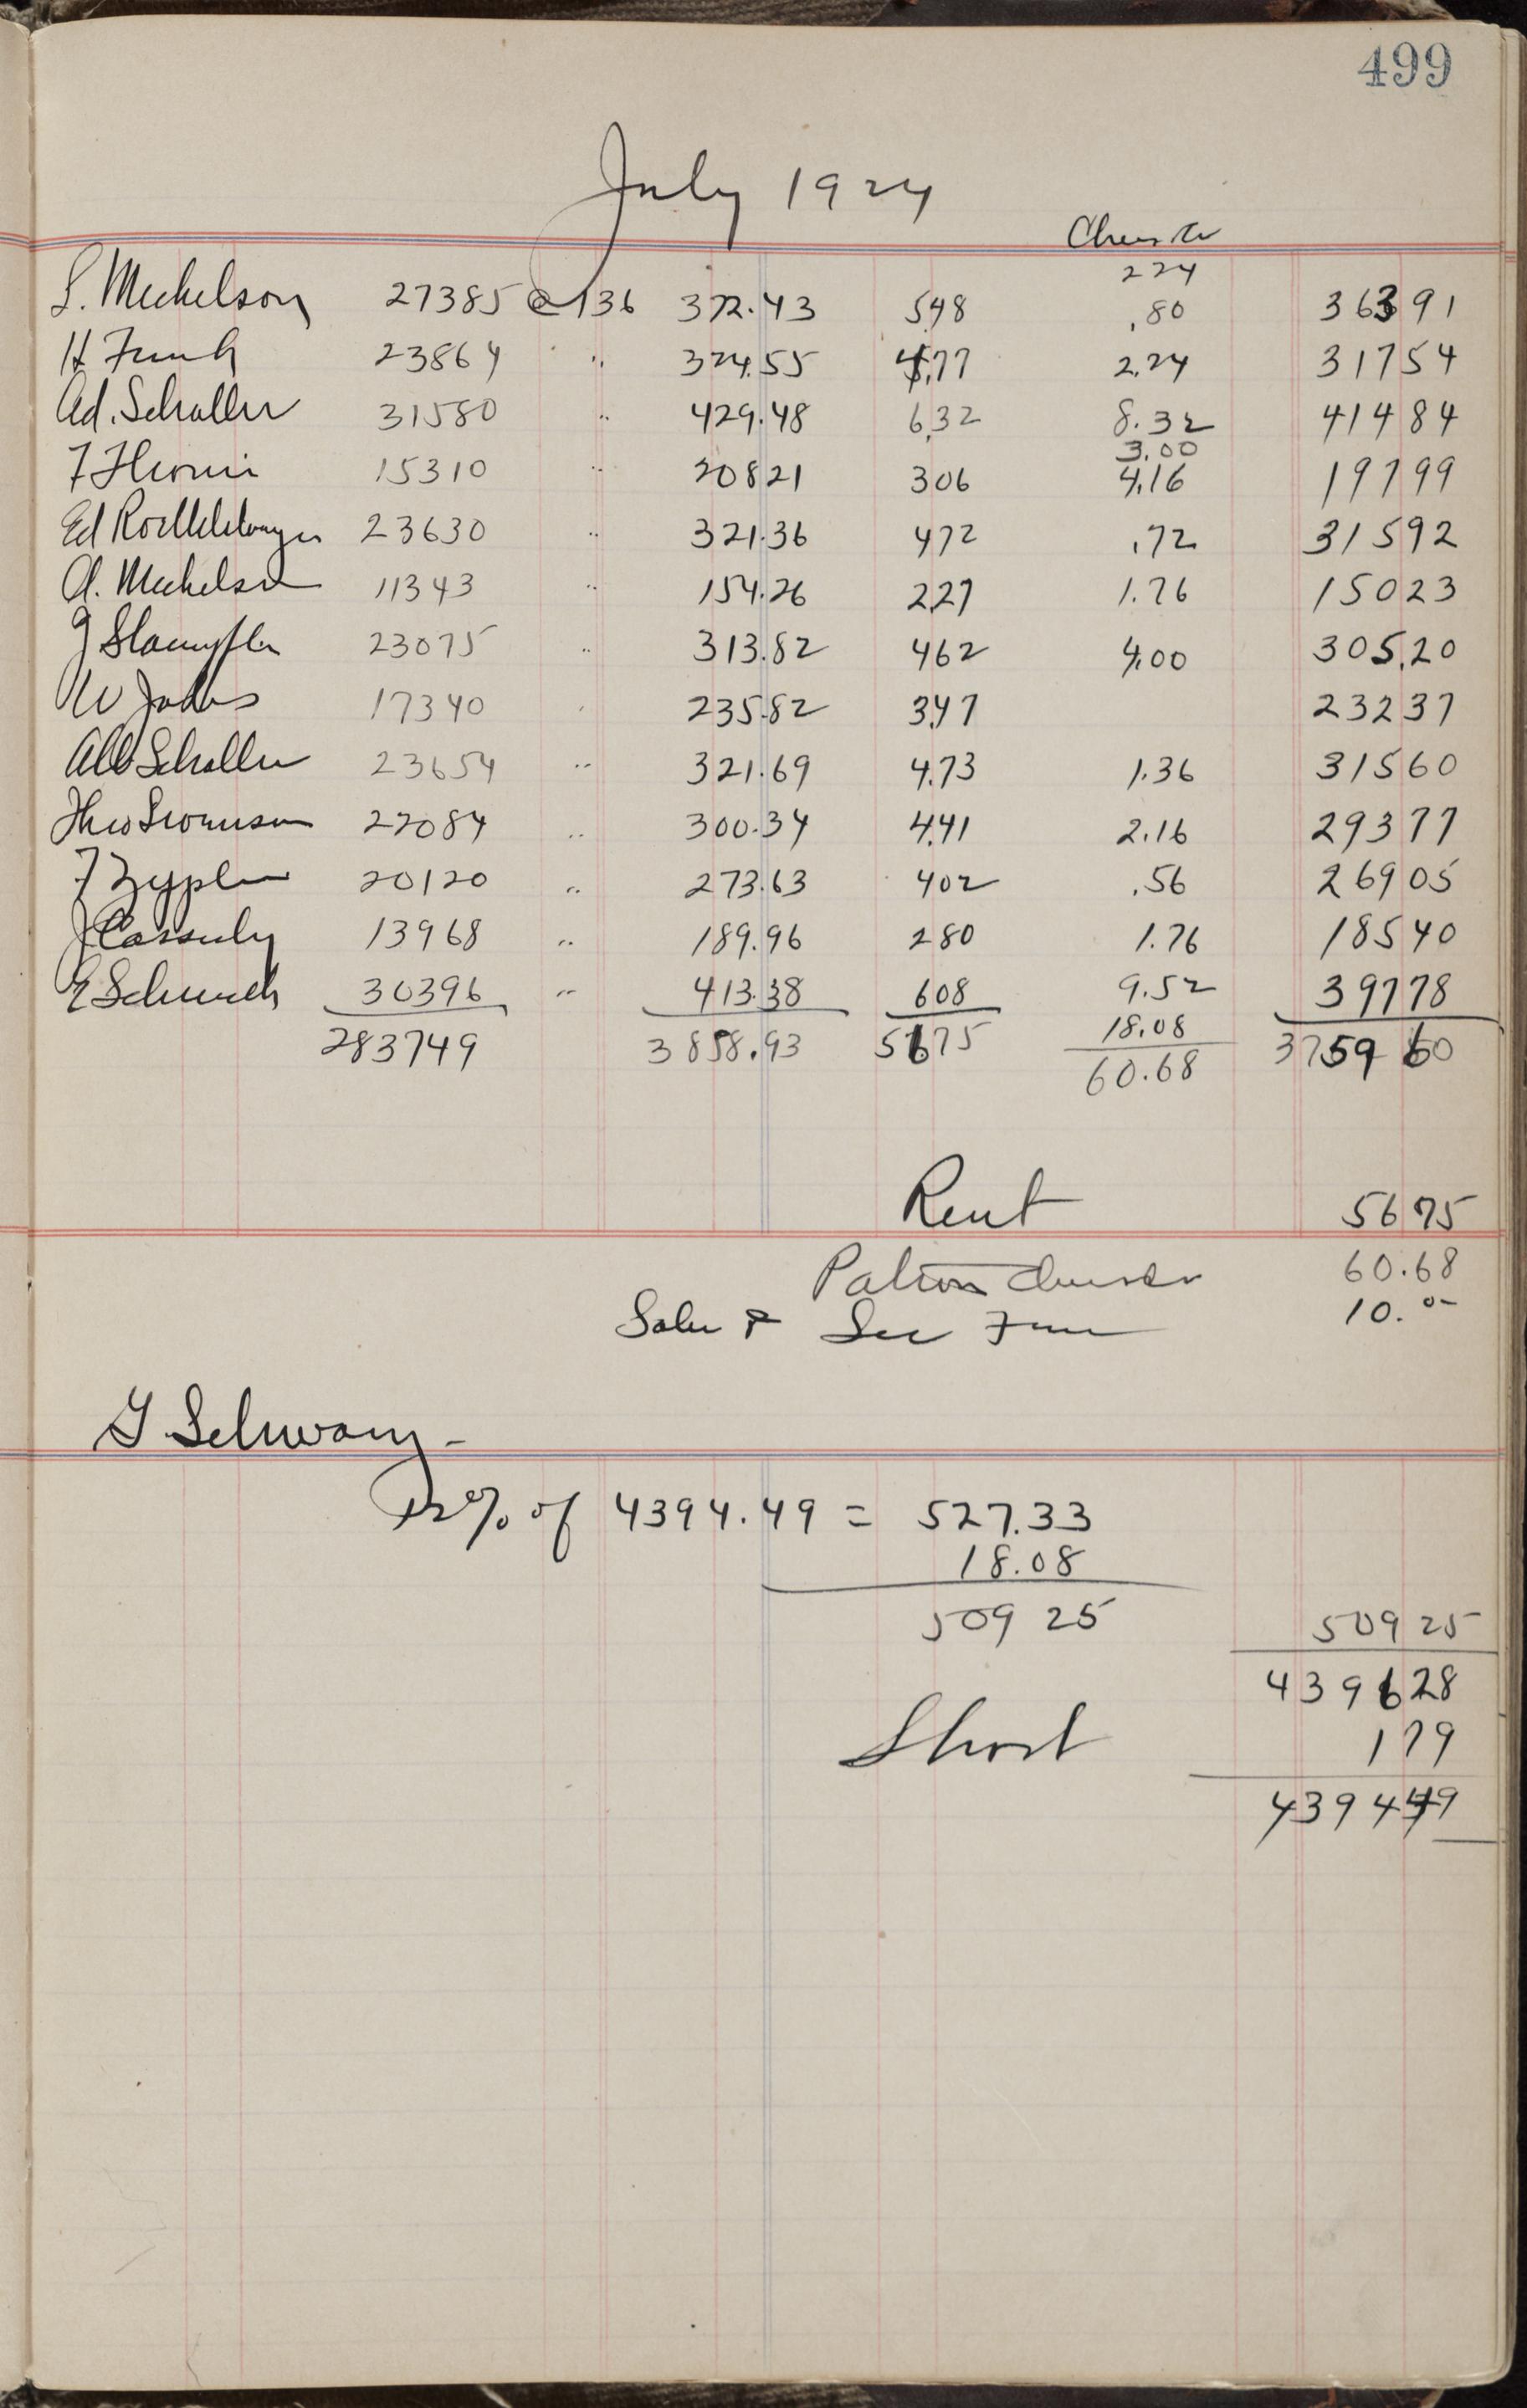 499
July 1924
Cheese
2 24
S. Mickelson 27385 @ 136 372.43 548 .80 36391
H Funk 23864 " 324.55 4.77 2.24 31754
Ad. Schaller 31580 " 429.48 6.32 8.32 41484
3.00
F 15310 " 20821 306 4.16 19799
Ed 23630 " 321.36 472 .72 31592
A. Mickelson 11343 " 154.26 227 1.76 15023
J Stampfli 23075 " 313.82 462 4.00 305.20
W Jahns 17340 " 235.82 347 23237
Alb Schaller 23654 " 321.69 4.73 1.36 31560
Theo Swenson 22084 " 300.34 4.41 2.16 29377
F 20120 " 273.63 402 .56 26905
J Cassidy 13968 " 189.96 280 1.76 18540
E Schurch 30396 " 413.38 608 9.52 39778
18.08
283749 3858.93 5675 60.68 3759 60
Rent 5675
Patron Cheese 60.68
Saler & Sec 10.00
G Schwarz
12% of 4394.49 = 527.33
18.08
509 25 509 25
4396 28
Short 179
4394 49